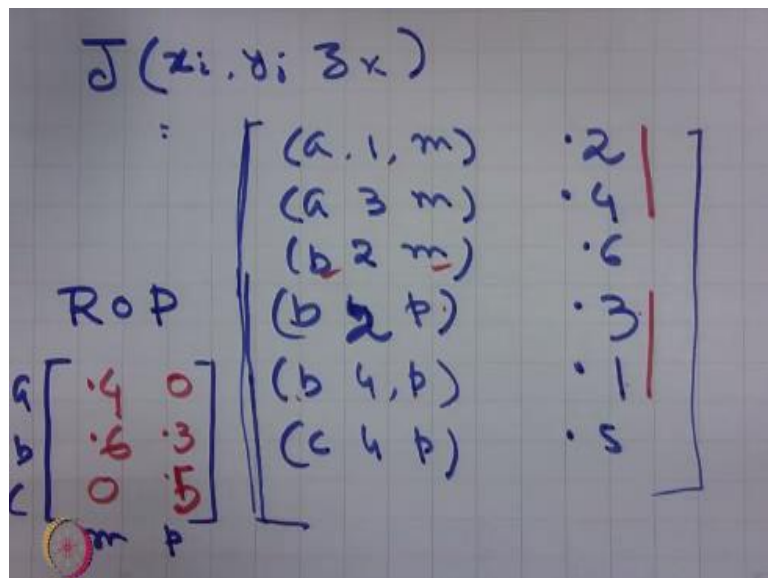 J(xi, yj zk)
=
(a, 1, m) .2
(a 3 m) .4
(b 2 m) .6
R o P
(b 2 p) .3
(b 4, p) .1
(c 4 p) .5
a .4 0
b .6 .3
c 0 .5
m p